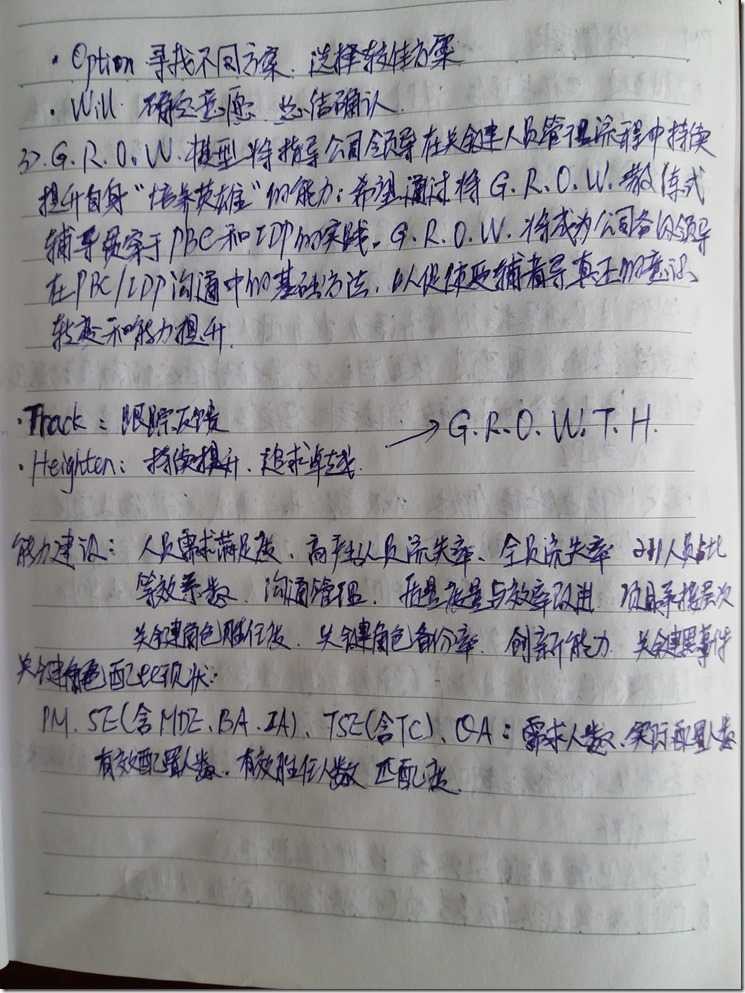 · Option 寻找不同方案、选择较佳方案
· Will 确定意愿、总结确认
3). G.R.O.W.模型将指导公司领导在关键人员管理流程中持续
提升自身“培养英雄”的能力；希望通过将G.R.O.W.教练式
辅导贯穿于PBC和IDP的实践。G.R.O.W.将成为公司各级领导
在PBC/IDP沟通中的基础方法，以促使被辅者导真正的意识
转变和能力提升.
· Track：跟踪反馈
→ G.R.O.W.T.H.
· Heighten：持续提升、追求卓越.
能力建设：人员需求满足度、高产出人员流失率、全员流失率 211人员占比
等效系数、沟通管理、质量与效率改进 项目承接层次
关键角色胜任度、关键角色备份率、创新能力 关键黑事件
关键角色配比现状：
PM、SE(含MDE、BA、IA)、TSE(含TC)、QA：需求人数、实际配置人数
有效配置人数、有效胜任人数 匹配度.